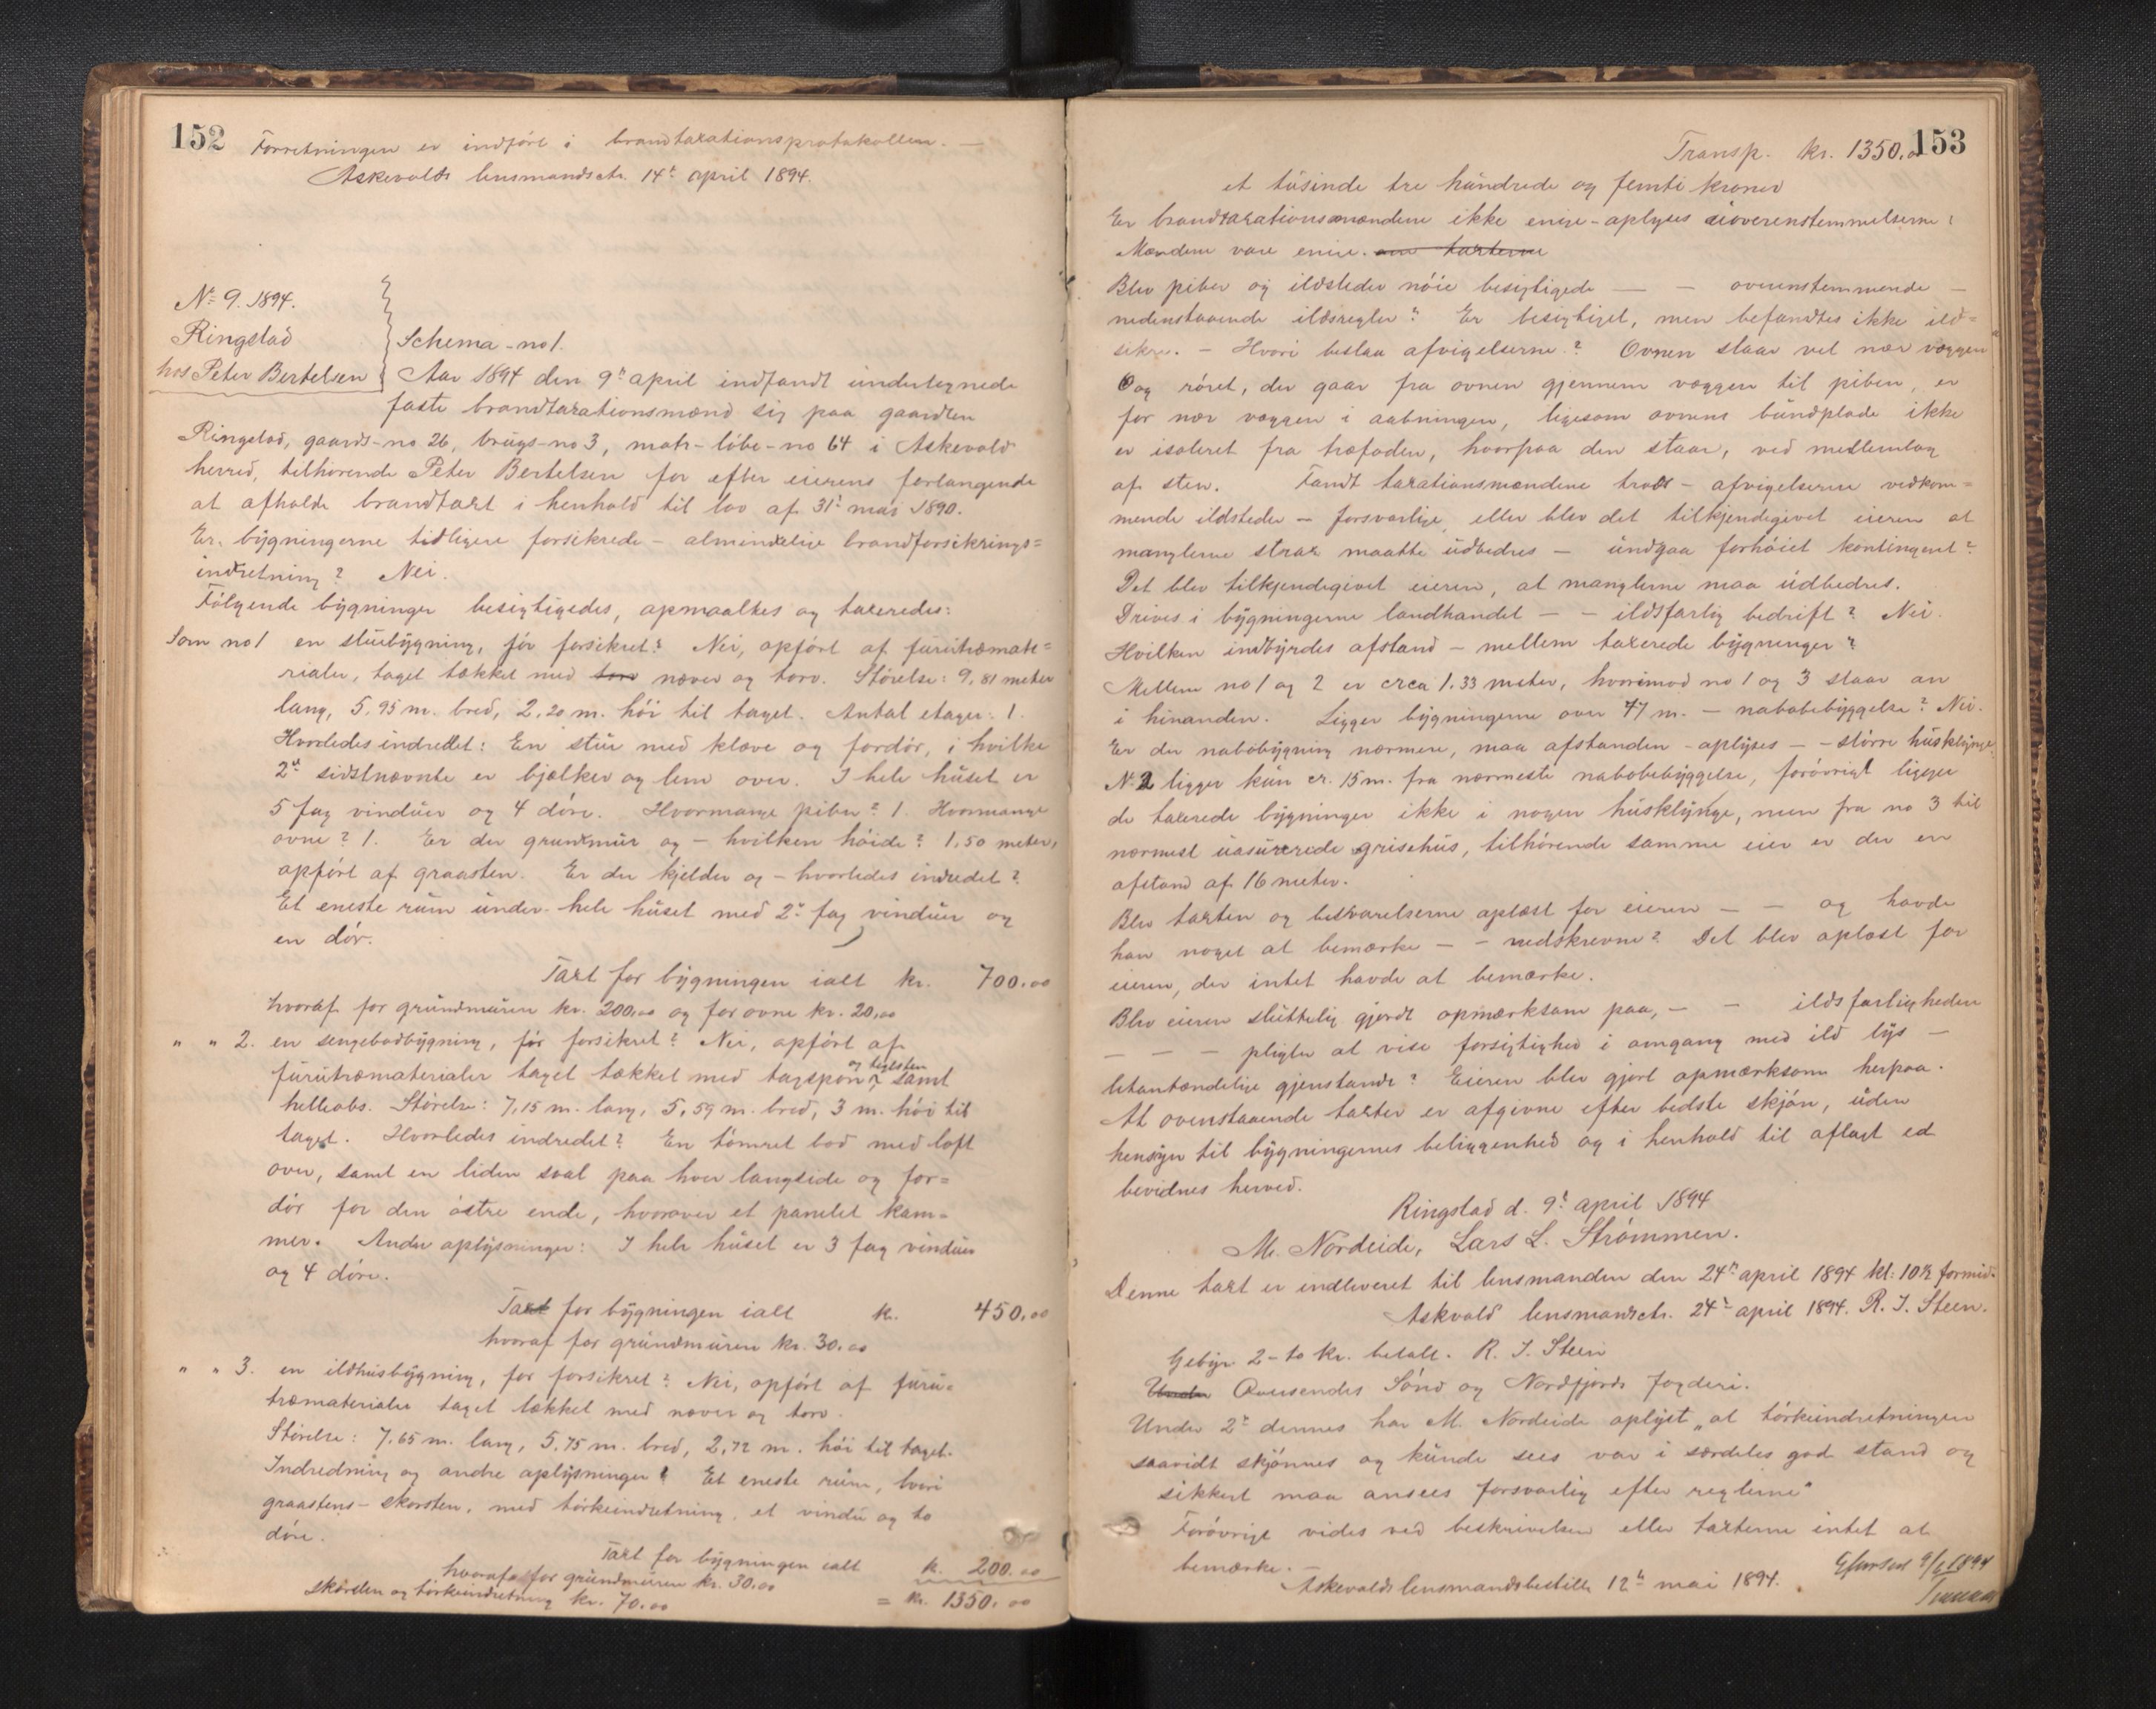 152
Forretningen er indført i brandtaxationsprotokollen. —
Askevolds lensmandsctr. 14de april 1894.
No 9. 1894.
Ringstad
hos Peter Bertelsen
Schema - no 1.
Aar 1894 den 9de april indfandt undertegnede
faste brandtaxationsmænd sig paa gaarden
Ringstad, gaards-no 26, brugs-no 3, matr-løbe-no 64 i Askevold
herred, tilhørende Peter Bertelsen for efter eierens forlangende
at afholde brandtaxt i henhold til lov af 31te mai 1890.
Er bygningerne tidligere forsikrede - almindelige brandforsikrings=
indretning? Nei.
Følgende bygninger besigtigedes, opmaaltes og taxeredes:
Som no 1 en stuebygning, før forsikret? Nei, opført af furutræmate=
rialer, taget tækket med torv næver og torv. Størelse: 9,81 meter
lang, 5,95 m. bred, 2,20 m. høi til taget. Antal etager: 1.
Hvorledes indredet: En stue med kleve og fordør, i hvilke
2de sidstnævnte er bjælker og lem over. I hele huset er
5 fag vinduer og 4 døre. Hvormange piber? 1. Hvormange
ovne? 1. Er der grundmur og - hvilken høide? 1,50 meter,
opført af graasten. Er der kjelder og - hvorledes indredet?
Et eneste rum under hele huset med 2de fag vinduer og
en dør.
Taxt for bygningen ialt kr. 700.00
hvoraf for grundmuren kr. 200,00 og for ovne kr. 20,00
" " 2. en sengebodbygning, før forsikret? Nei, opført af
furutræmaterialer taget tækket med tagspon og teglsten samt
helleabs. Størelse: 7,15 m. lang, 5,59 m. bred, 3 m. høi til
taget. Hvorledes indredet? En tømret bod med loft
over, samt en liden sval paa hver langside og for=
dør for den østre ende, hvorover et panelet kam=
mer. Andre oplysninger: I hele huset er 3 fag vinduer
og 4 døre.
Taxt for bygningen ialt kr. 450.00
hvoraf for grundmuren kr. 30.00
" " 3. en ildhusbygning, før forsikret? Nei, opført af furu=
træmaterialer taget tækket med næver og torv.
Størelse: 7,65 m. lang, 5,75 m. bred, 2,72 m. høi til taget.
Indredning og andre oplysninger? Et eneste rum, hvori
graastens-skorsten, med tørkeindretning, et vindu og to
døre.
Taxt for bygningen ialt kr. 200.00
hvoraf for grundmuren kr. 30.00
skorsten og tørkeindretning kr. 70.00 = kr. 1350.00
153
Transp. kr. 1350.00
et tusinde tre hundrede og femti kroner
Er brandtaxationsmændene ikke enige - oplyses uoverenstemmelserne?
Mændene vare enige. om taxterne
Blev piber og ildsteder nøie besigtigede — — overenstemmende —
nedenstaaende ildsregler? Er besigtiget, men befandtes ikke ild=
sikre. - Hvori bestaa afvigelserne? Ovnen staar vel nær væggen
og røret, der gaar fra ovnen gjennem væggen til piben, er
for nær væggen i aabningen, ligesom ovnens bundplade ikke
er isoleret fra træfoden, hvorpaa den staar, ved mellemlag
af sten. Fandt taxationsmændene trods - afvigelserne vedkom=
mende ildsteder - forsvarlige eller blev det tilkjendegivet eieren at
manglerne strax maatte udbedres - undgaa forhøiet kontingent?
Det blev tilkjendegivet eieren, at manglerne maa udbedres.
Drives i bygningerne landhandel - - ildsfarlig bedrift? Nei.
Hvilken indbyrdes afstand - mellem taxerede bygninger?
Mellem no 1 og 2 er crca 1.33 meter, hvorimod no 1 og 3 staar an
i hinanden. Ligger bygningerne over 77 m. - nabobebyggelse? Nei.
Er der nabobygning nærmere, maa afstanden - oplyses - - større husklynge
No 2 ligger kun cr. 15 m. fra nærmeste nabobebyggelse, forøvrigt ligger
de taxerede bygninger ikke i nogen husklynge, men fra no 3 til
nærmest uasurerede grisehus, tilhørende samme eier er der en
afstand af 16 meter.
Blev taxten og besvarelserne oplæst for eieren - - og havde
han noget at bemærke - - nedskrevne? Det blev oplæst for
eieren, der intet havde at bemærke.
Blev eieren sluttelig gjordt opmærksom paa, - - ildsfarligheden
— — — pligter at vise forsigtighed i omgang med ild lys —
letantændelige gjenstande? Eieren blev gjort opmærksom herpaa.
At ovenstaaende taxter er afgivne efter bedste skjøn, uden
hensyn til bygningernes beliggenhed og i henhold til aflagt ed
bevidnes herved.
Ringstad d. 9de april 1894
M. Nordeide, Lars L. Strømmen.
Denne taxt er indleveret til lensmanden den 24de april 1894 kl: 10½ formid.
Askvold lensmandsctr. 24de april 1894. R. J. Steen.
Gebyr 2 - to kr. betalt. R. J. Steen
Under Oversendes Sønd og Nordfjords fogderi.
Under 2de dennes har M. Nordeide oplyst „at tørkeindretningen
saavidt skjønnes og kunde sees var i særdeles god stand og
sikkert maa ansees forsvarlig efter reglerne"
Forøvrigt vides ved beskrivelsen eller taxterne intet at
bemærke. —
Askevolds lensmandsbestilling 12te mai 1894.
1894